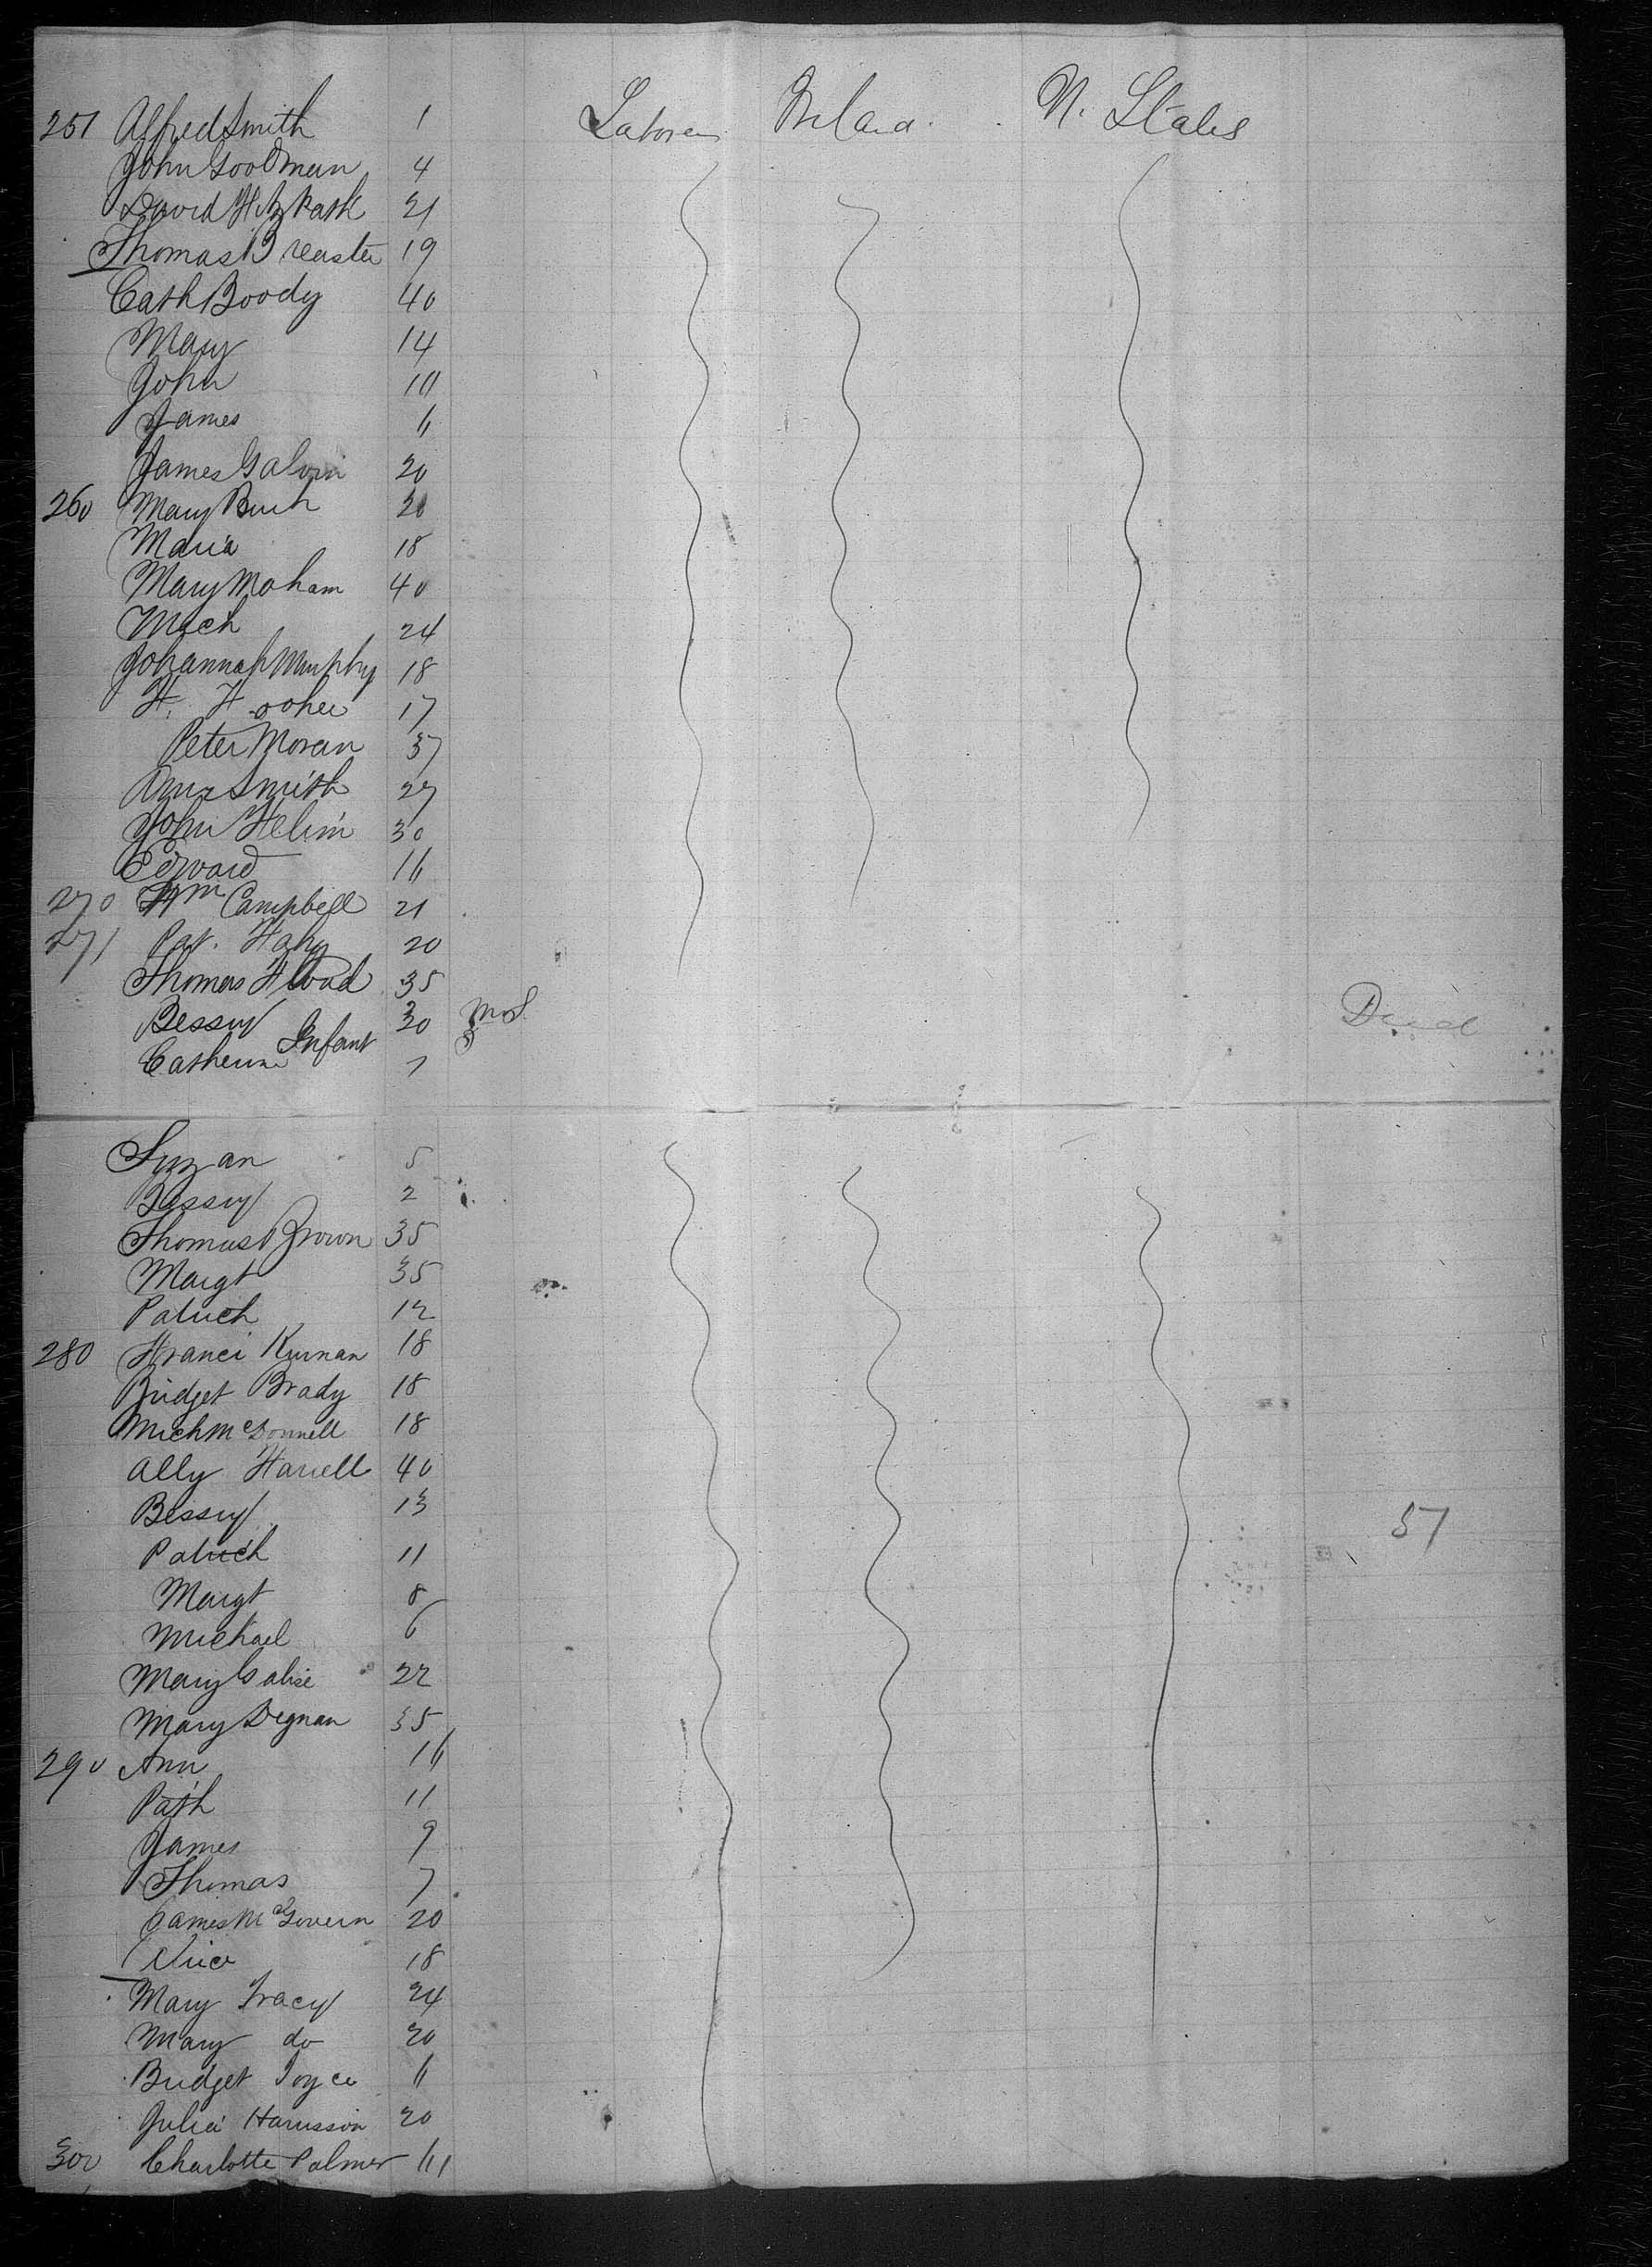 251 Alfred Smith 1 Laborer Ireland. N. States
John Goodman 4
David 21
Thomas 19
Cath Boody 40
Mary 14
John 10
James 6
James Galvin 20
260 Mary 20
Maria 18
Mary Moham 40
Mich 24
Johannah Murphy 18
17
Peter Moran 37
Ann Smith 27
John 30
Edward 16
270 Wm Campbell 21
271 Pat. 20
Thomas Flood 35
Bessy 30
Infant Dead
Catherine 7
Suzan 5
Bessy 2
Thomas Brown 35
Margt 35
Patrick 12
280 Franci Kurnan 18
Bridget Brady 18
Mich McDonnell 18
Ally Farrell 40
Bessy 13 57
Patrick 11
Margt 8
Michael 6
Mary 22
Mary Degnan 35
290 Ann 16
Patk 11
James 9
Thomas 7
James McGovern 20
18
Mary Tracy 24
Mary do 20
Bridget Joyce 6
Julia Harrisson 20
300 Charlotte Palmer